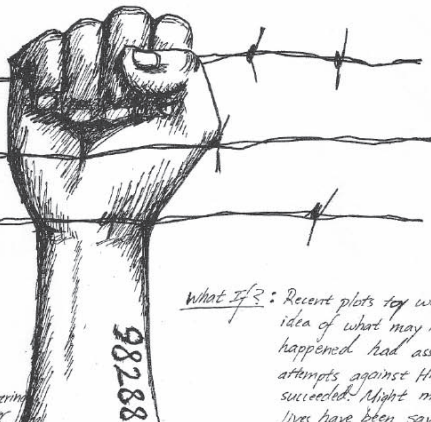 98288
What If? : Recent plots toy w
idea of what may
happened had ass
attempts against H
succeeded. Might m
lives have been sav
ering